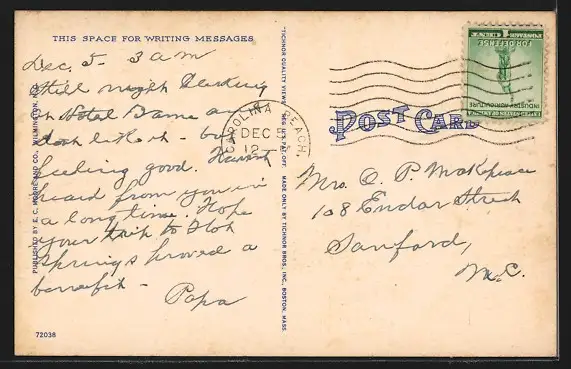 THIS SPACE FOR WRITING MESSAGES
Dec. 5 - 3 am
Still night Clerking
in Hotel Bame and
don't like it - but
feeling good. Haven't
heard from you in
a long time. Hope
your trip to Hot
Springs proved a
benefit -
Papa
72036
PUBLISHED BY E. C. MOORE AND CO., WILMINGTON, N. C.
"TICHNOR QUALITY VIEWS" REG. U. S. PAT. OFF. MADE ONLY BY TICHNOR BROS., INC., BOSTON, MASS.
CAROLINA BEACH,
DEC 5
12
POST CARD
UNITED STATES OF AMERICA
INDUSTRY AGRICULTURE
FOR DEFENSE
1 CENT 1
POSTAGE
Mrs. O. P. Makepeace
108 Endor Street
Sanford,
N.C.